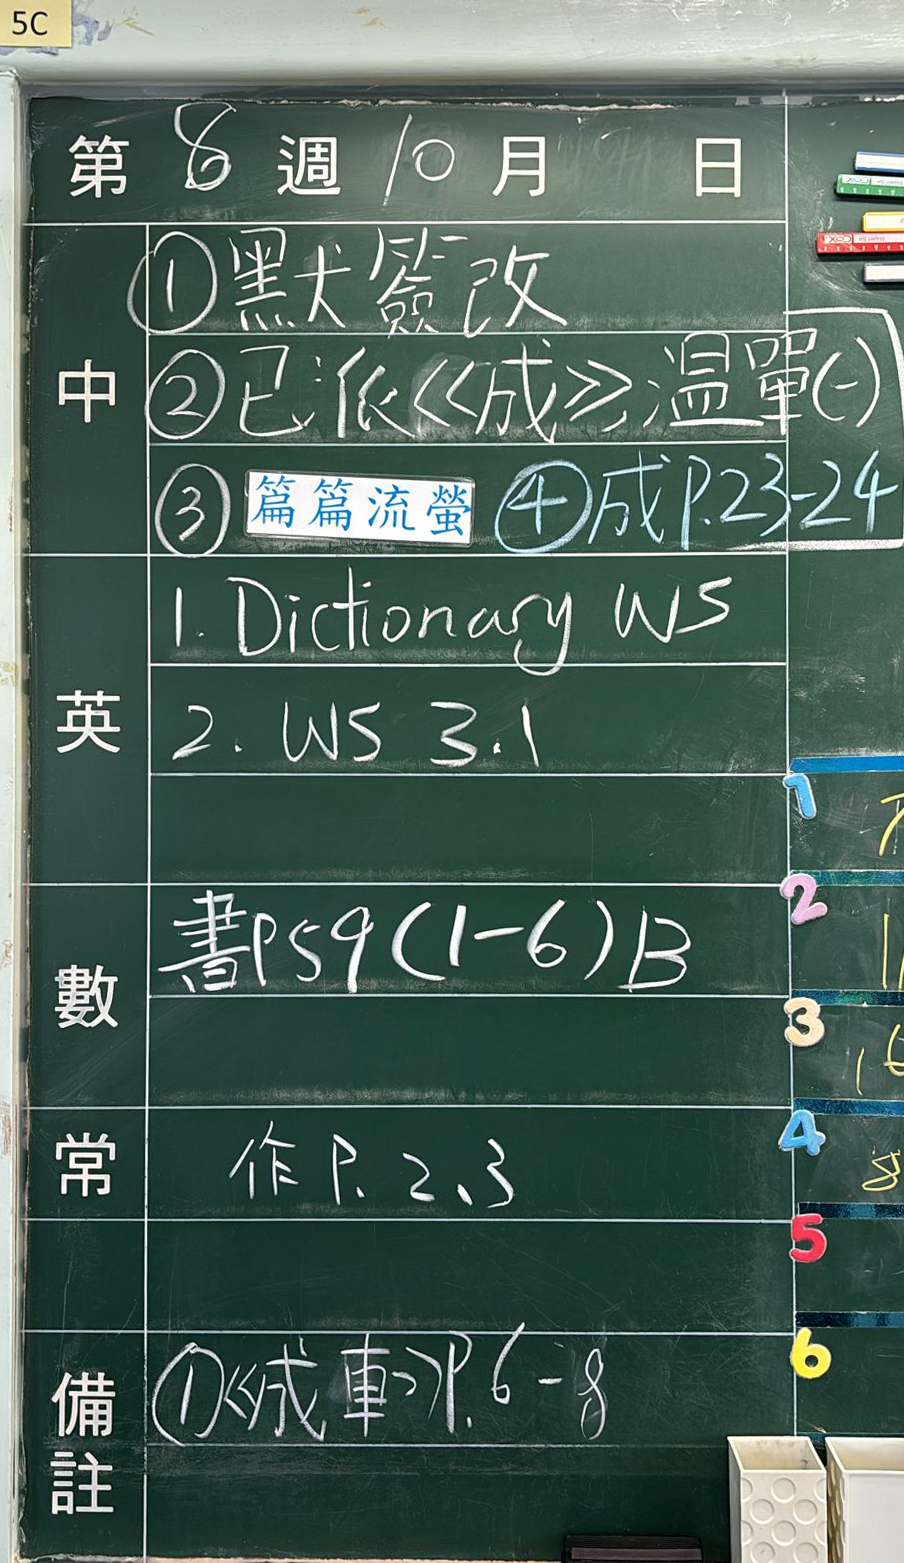 5C
第 8 週 10 月 日
中
①默簽改
②已派《成》溫單(一)
③ 篇篇流螢 ④成P.23-24
英
1. Dictionary WS
2. WS 3.1
數
書P59(1-6)B
常
作 P. 2、3
備註
①《成車》P.6-8
1
2
3
4
8
5
6